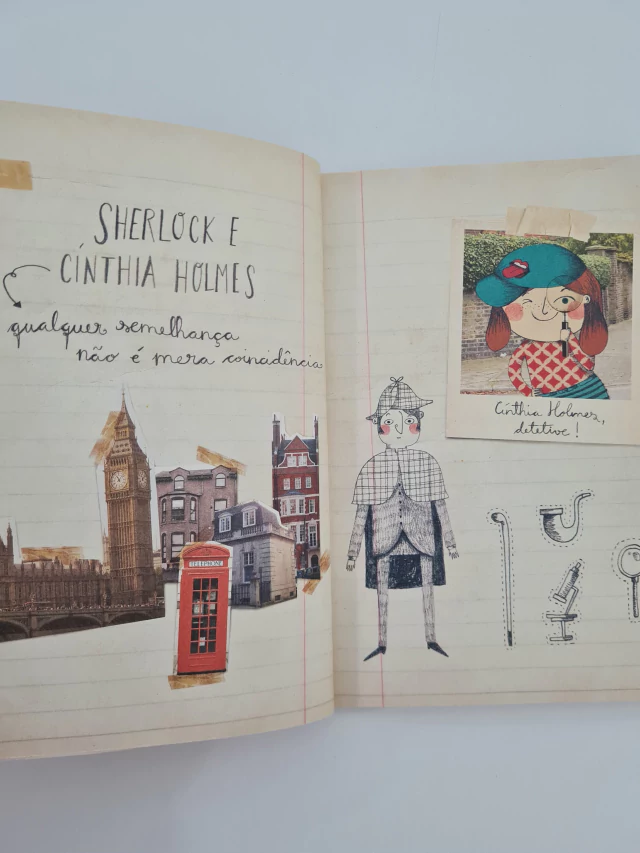 SHERLOCK E
CÍNTHIA HOLMES
qualquer semelhança
não é mera coincidência
TELEPHONE
Cínthia Holmes,
detetive!